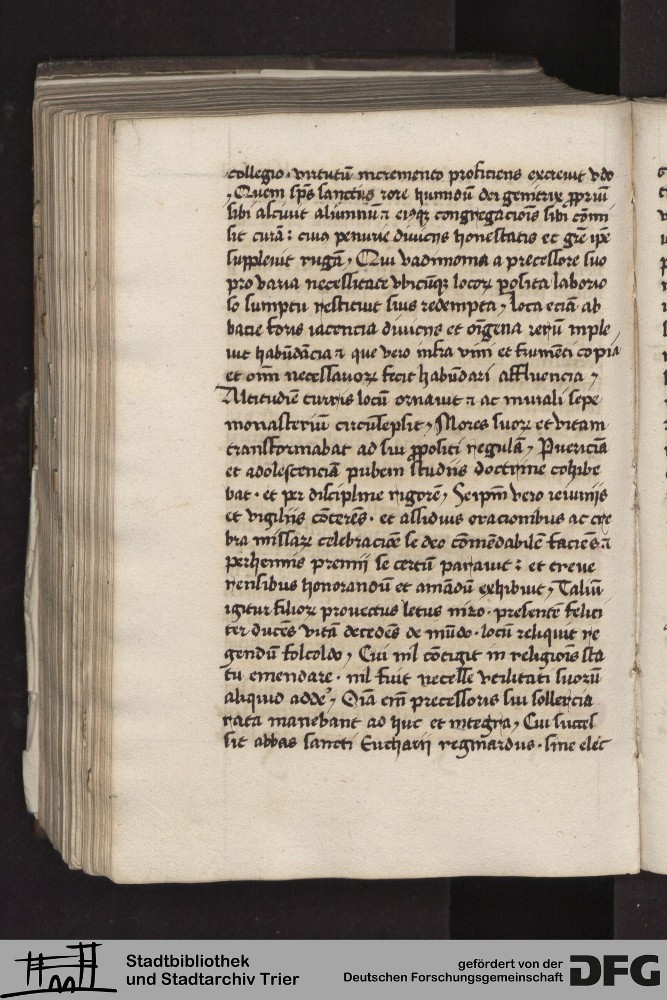 collegio · virtutũ incremento proficiens excreuit vdo
, Quem sp̃s sanctus rore humidũ dei genitrix ꝓpriũ
sibi asciuit alũmnũ ⁊ eiꝰqꝫ congregacioĩs sibi cõmi
sit curã : cuiꝰ penurie diuicijs honestatis et gr̃e ip̃e
suppleuit rugã , Qui vadimonia a precessore suo
pro varia necessitate vbicũqꝫ locoꝝ posita laborio
so sumptu restituit suis redempta , loca eciã ab
bacie foris iacencia diuicijs et oĩgena rerũ imple
uit habũdãcia ⁊ que vero infra vini et frumẽti copia
et oĩm necessarioꝝ fecit habũdari affluencia ,
Altitudiẽ turris locũ ornauit ⁊ ac murali sepe
monasteriũ circũsepsit , Mores suoꝝ et vitam
transformabat ad sui ꝓpositi regulã , Puericiã
et adolescenciã pubem studijs doctrine cohibe
bat · et per discipline rigorẽ , Seip̃m vero ieiunijs
et vigilijs cõterẽs · et assiduis oracionibus ac cre
bra missaꝝ celebracioẽ se deo cõmẽdabilẽ faciẽs ⁊
perhennis premij se certũ parauit : et treue
rensibus honorandũ et amãdũ exhibuit , Taliũ
igitur filioꝝ prouectus letus niʒo · presentẽ felici
ter ducẽs vitã decedẽs de mũdo · locũ reliquit re
gendũ folcoldo , Cui nil cõtigit in religioĩs sta
tu emendare · nil fuit necesse vtilitati suorũ
aliquid adde᷒ , Quia em̃ precessoris sui sollercia
rata manebant ad huc et integra , Cui succes
sit abbas sancti Eucharij reginardus · sine elec
Stadtbibliothek
und Stadtarchiv Trier
gefördert von der
Deutschen Forschungsgemeinschaft
DFG